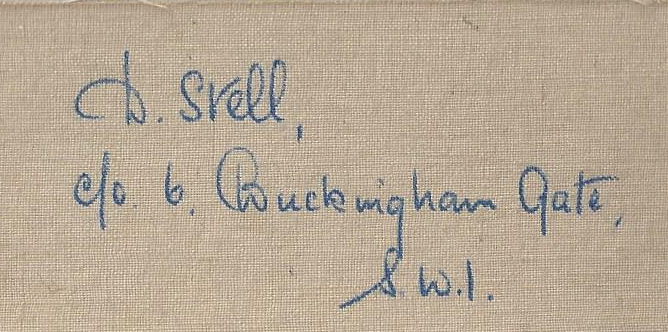 D. Stell,
c/o. 6, Buckingham Gate,
S.W.1.